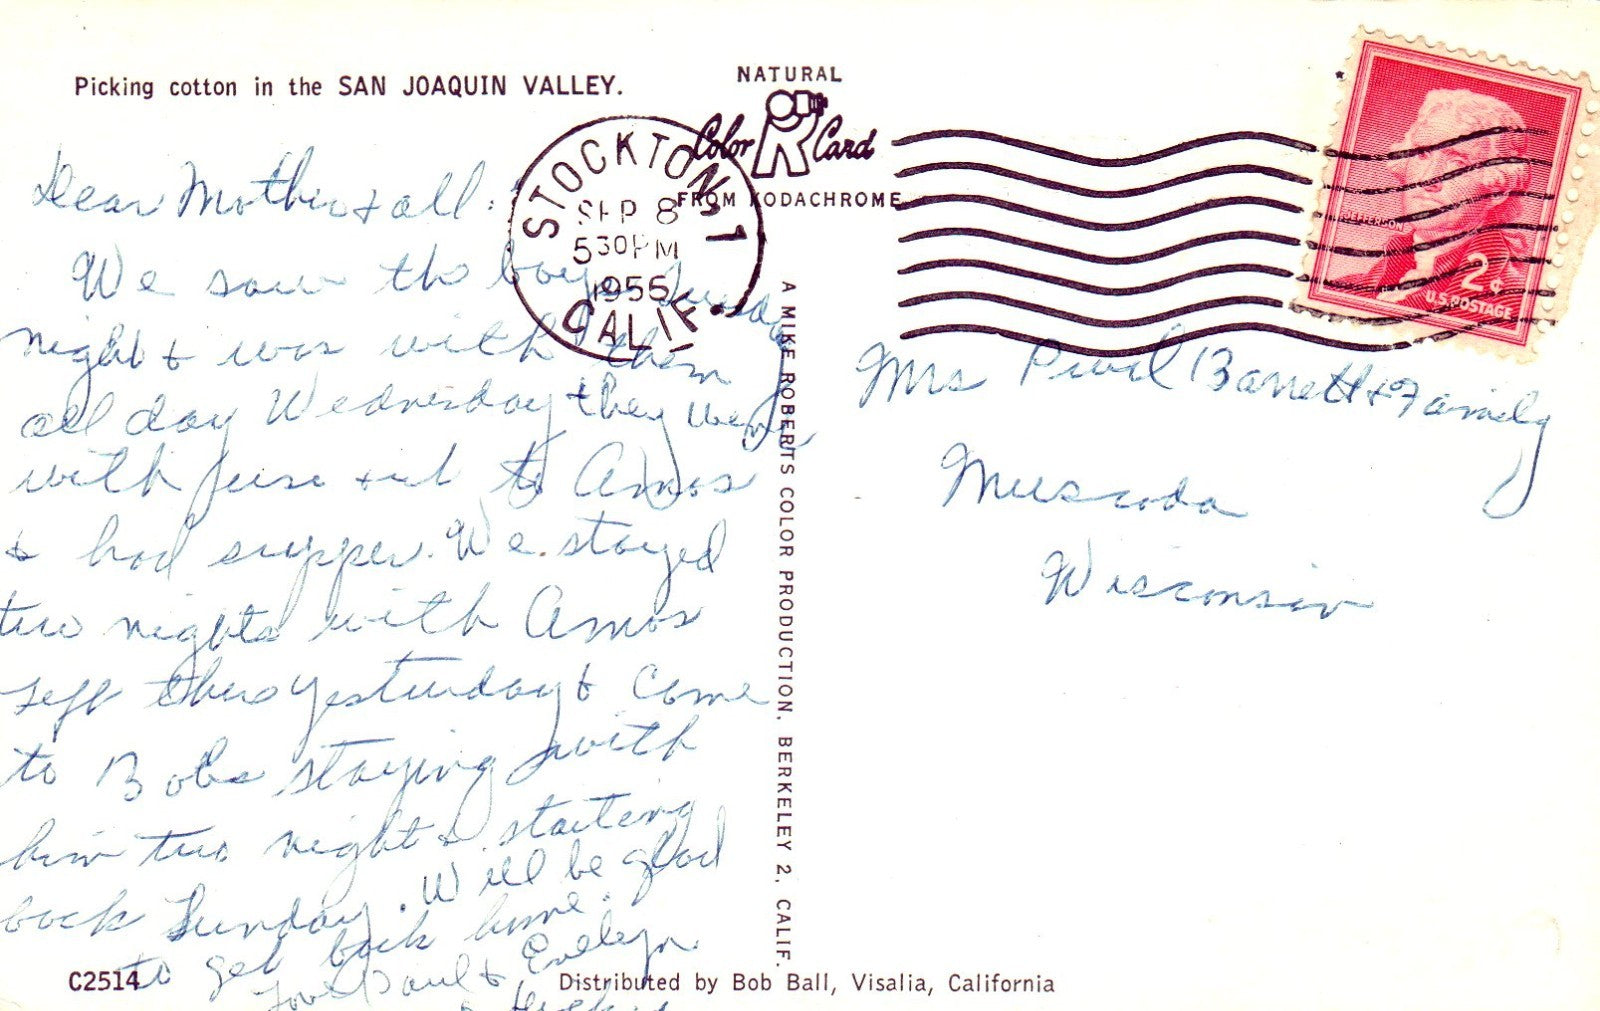 Picking cotton in the SAN JOAQUIN VALLEY.
NATURAL
Color Card
FROM KODACHROME
STOCKTON 1
SEP 8
530PM
1956
CALIF.
JEFFERSON
2¢
U.S. POSTAGE
Dear Mother & all:
We saw the boys Tuesday
night & was with them
all day Wednesday they went
with us to Amos
& had supper. We stayed
two nights with Amos
left there yesterday & come
to Bobs staying with
him two nights & starting
back Sunday. Will be glad
to get back home.
Love Paul & Evelyn
A MIKE ROBERTS COLOR PRODUCTION, BERKELEY 2, CALIF.
Mrs Barrett & Family
Muscoda
Wisconsin
C2514
Distributed by Bob Ball, Visalia, California